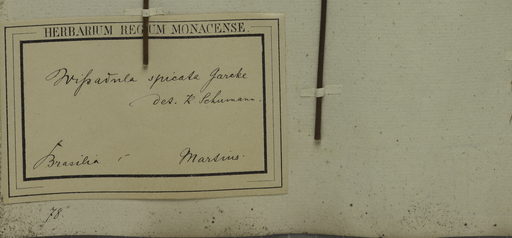 HERBARIUM REGIUM MONACENSE.
Wissadula spicata Garcke
det. K Schumann.
Brasilia Martius.
78